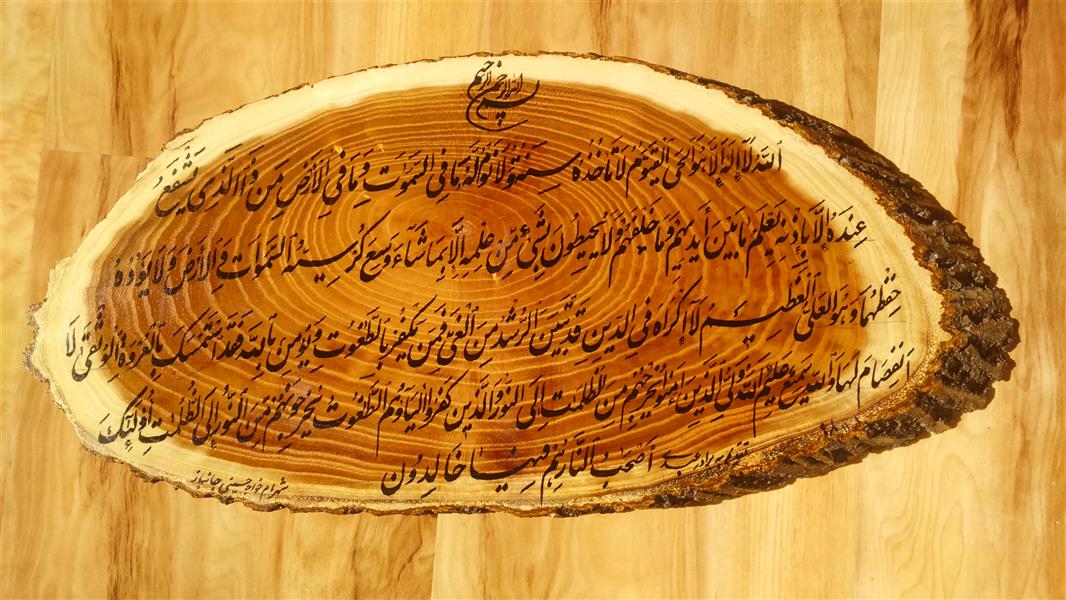 بسم الله الرحمن الرحیم
ٱللَّهُ لَا إِلَهَ إِلَّا هُوَ ٱلْحَیُّ ٱلْقَیُّومُ لَا تَأْخُذُهُ سِنَةٌ وَلَا نَوْمٌ لَهُ مَا فِی ٱلسَّمَوَتِ وَمَا فِی ٱلْأَرْضِ مَن ذَا ٱلَّذِی یَشْفَعُ
عِندَهُ إِلَّا بِإِذْنِهِ یَعْلَمُ مَا بَیْنَ أَیْدِیهِمْ وَمَا خَلْفَهُمْ وَلَا یُحِیطُونَ بِشَیْءٍ مِّنْ عِلْمِهِ إِلَّا بِمَا شَاءَ وَسِعَ كُرْسِیُّهُ ٱلسَّمَوَاتِ وَٱلْأَرْضَ وَلَا یَؤُدُهُ
حِفْظُهُمَا وَهُوَ ٱلْعَلِیُّ ٱلْعَظِیمُ لَا إِكْرَاهَ فِی ٱلدِّینِ قَد تَّبَیَّنَ ٱلرُّشْدُ مِنَ ٱلْغَیِّ فَمَن یَكْفُرْ بِٱلطَّغُوتِ وَیُؤْمِن بِٱللَّهِ فَقَدِ ٱسْتَمْسَكَ بِٱلْعُرْوَةِ ٱلْوُثْقَى لَا
ٱنفِصَامَ لَهَا وَٱللَّهُ سَمِیعٌ عَلِیمٌ ٱللَّهُ وَلِیُّ ٱلَّذِینَ ءَامَنُوا یُخْرِجُهُم مِّنَ ٱلظُّلُمَتِ إِلَى ٱلنُّورِ وَٱلَّذِینَ كَفَرُوا أَوْلِیَاؤُهُمُ ٱلطَّغُوتُ یُخْرِجُونَهُم مِّنَ ٱلنُّورِ إِلَى ٱلظُّلُمَتِ أُولَئِكَ
أَصْحَبُ ٱلنَّارِ هُمْ فِیهَا خَالِدُونَ
تقدیم به برادر
شهرام خواجه حسینی جانباز